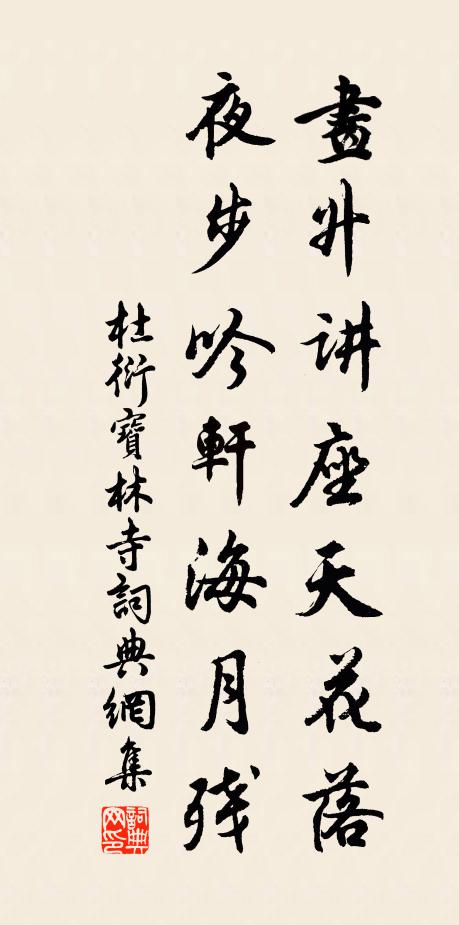 晝升讲座天花落
夜步吟軒海月残
杜衍寶林寺詞典網集
詞典网印